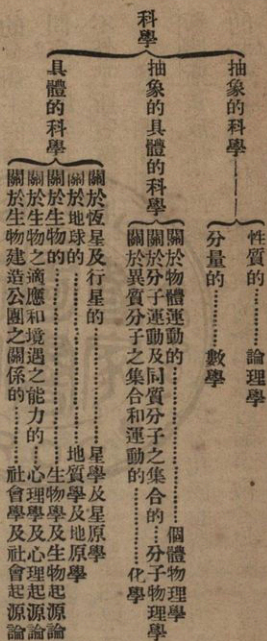 科學
抽象的科學
性質的………論理學
分量的………數學
抽象的具體的科學
關於物體運動的………個體物理學
關於分子運動及同質分子之集合的……分子物理學
關於異質分子之集合和運動的………化學
具體的科學
關於恆星及行星的………星學及星原學
關於地球的………地質學及地原學
關於生物的………生物學及生物起源論
關於生物之適應和境遇之能力的……心理學及心理起源論
關於生物建造公團之關係的………社會學及社會起源論